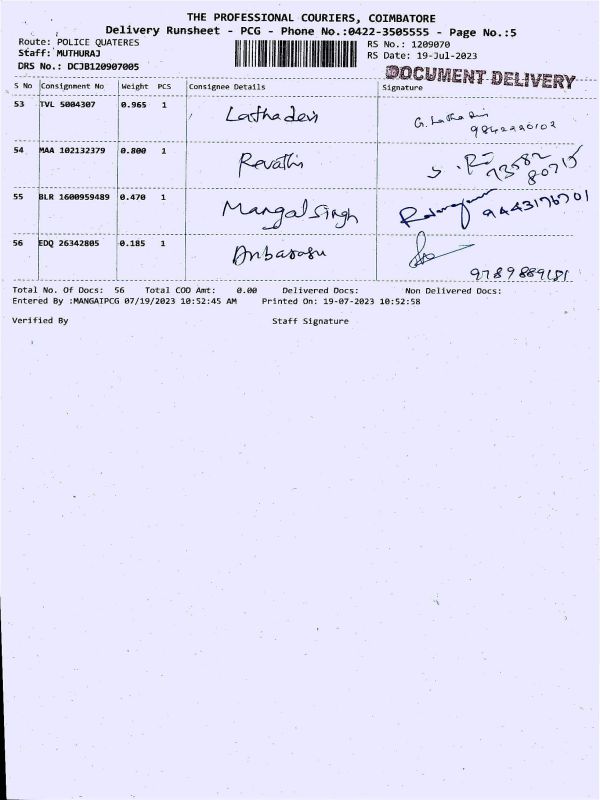 THE PROFESSIONAL COURIERS, COIMBATORE
Delivery Runsheet - PCG - Phone No.:0422-3505555 - Page No.:5
Route: POLICE QUATERES
Staff: MUTHURAJ
DRS No.: DCJB120907005
RS No.: 1209070
RS Date: 19-Jul-2023
DOCUMENT DELIVERY
S No Consignment No Weight PCS Consignee Details Signature
53 TVL 5004307 0.965 1 Lathadevi G. Latha
54 MAA 102132379 0.800 1 Revathi 73582
80715
55 BLR 1600959489 0.470 1 Mangalsingh 9443176701
56 EDQ 26342805 0.185 1 Anbarasu
9789889181
Total No. Of Docs: 56 Total COD Amt: 0.00 Delivered Docs: Non Delivered Docs:
Entered By :MANGAIPCG 07/19/2023 10:52:45 AM Printed On: 19-07-2023 10:52:58
Verified By Staff Signature